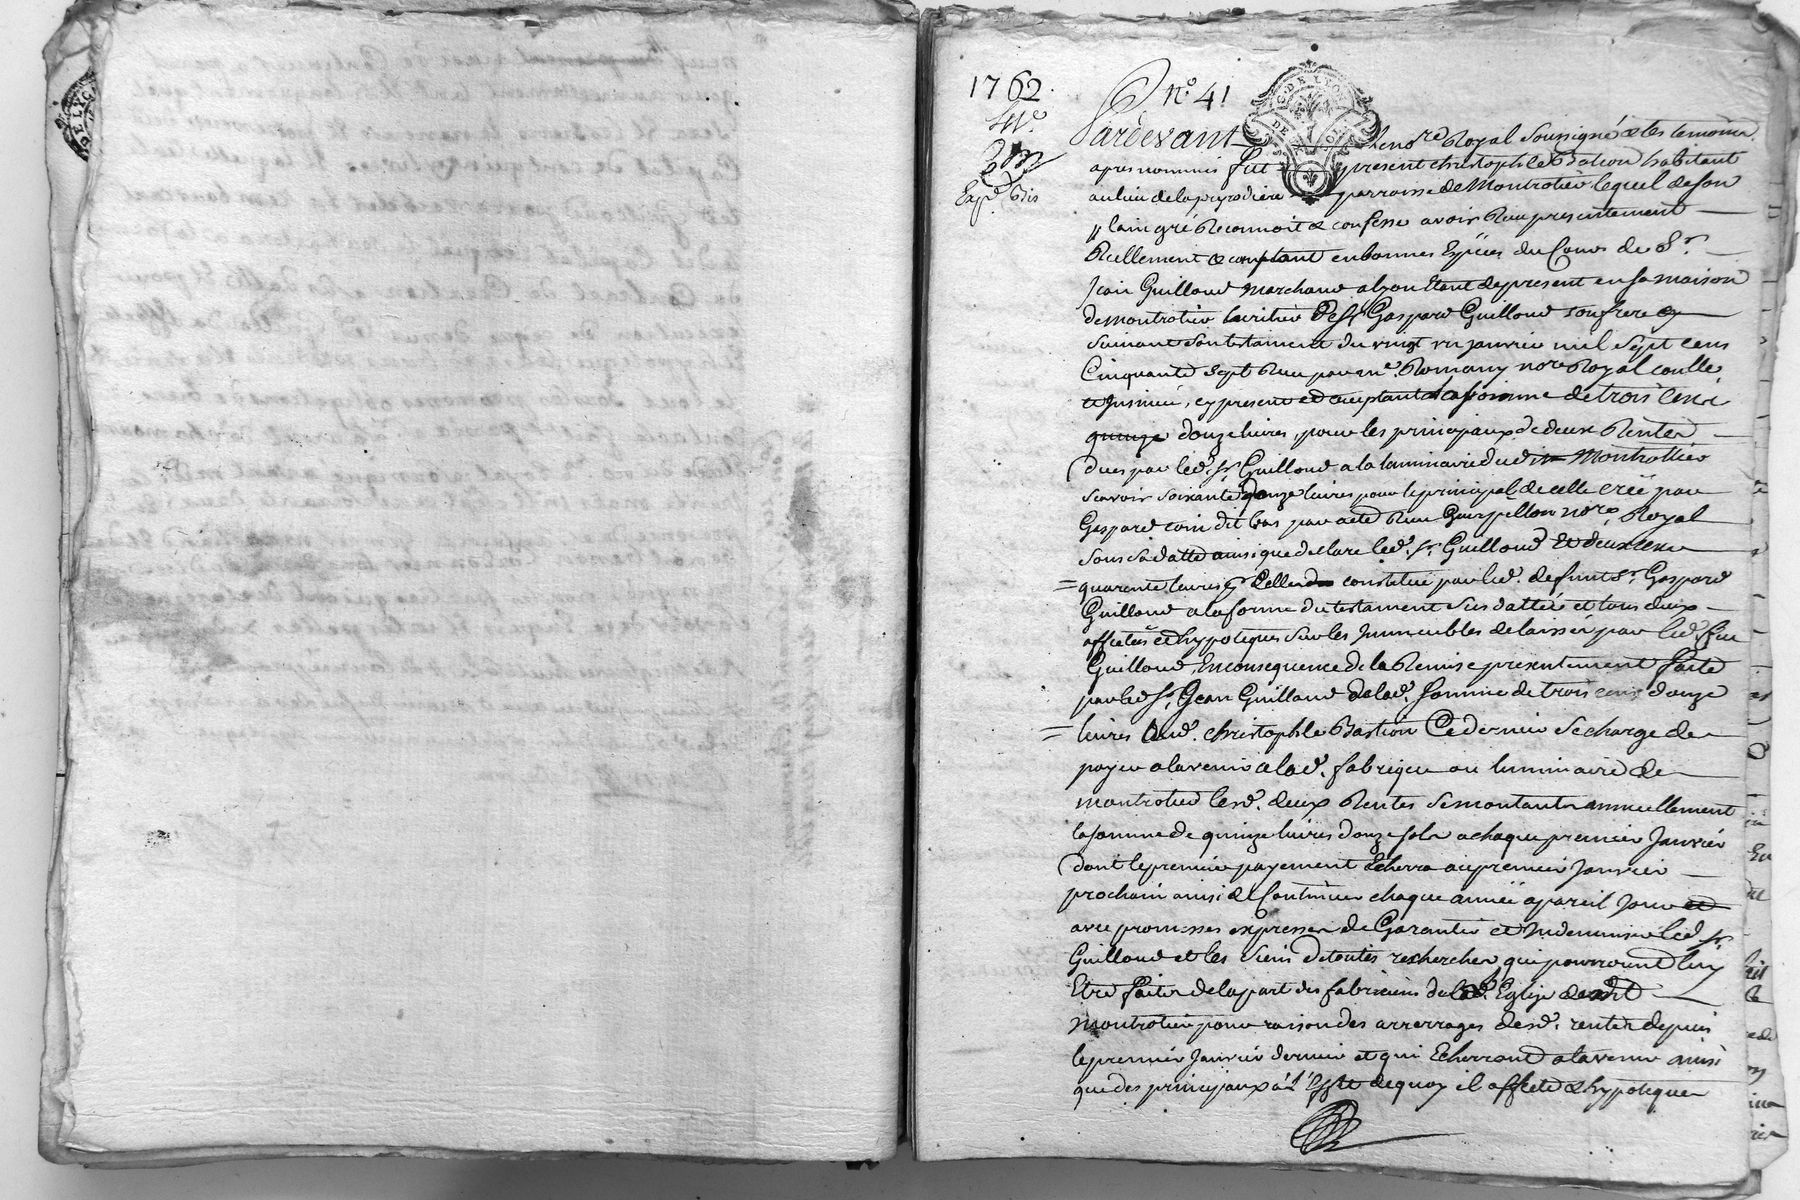 1762
nº 41
Expº. Bis
G. DE LYON
Pardevant le nore Royal soussigné & les temoins
apres nommés fut present christophle Bastion habitant
au lieu de la pyrodiere parroisse de Montrotier lequel de son
plain gré Reconnoit & confesse avoir Reçu presentement
Réellement & comptant en bonnes Espéces du Cours de Sr.
Jean Guilloud marchand a lyon Etant de present en sa maison
de montrotier heritier de Sr. Gaspard Guilloud son frere
suivant son testament du vingt un janvier mil sept cens
Cinquante sept Reçu par me. Romany nore Royal
insinué, cy present et acceptant la somme de trois cens
quinze douze livres, pour les principaux de deux Rentes
dues par led. Sr. Guilloud a la luminaire dud. Montrottier
sçavoir soixante douze livres pour le principal de celle créé par
Gaspard coin dit bas par acte Reçu Guerpillon nore Royal
sous sa datte ainsi que declare led. Sr. Guilloud Et deux cens
quarante livres pr celle constitué par led. defunt Sr. Gaspard
Guilloud a la forme du testament sus datté et tous deux
affectés et hypoteques sur les Immeubles delaissés par led. feu
Guilloud, En consequence de la Remise presentement faite
par led. Sr. Jean Guilloud de lad. somme de trois cens douze
livres aud. christophle Bastion Ce dernier se charge de
payer a lavenir a lad. fabrique ou luminaire de
montrotier lesd. deux Rentes se montants annuellement
la somme de quinze livres douze sols a chaque premier Janvier
dont le premier payement Echerra au premier Janvier
prochain ainsi & Continuer chaque année a pareil Jour
avec promesses expresses de Garantir et Indemniser led. Sr.
Guilloud et les siens de toutes recherches qui pourroient luy
Etre faites de la part des fabriciens de lad. Eglise dudit
montrotier pour raison des arrerages desd. rentes depuis
le premier Janvier dernier et qui Echerront a lavenir ainsi
que des principaux à l'Effet de quoy il affecte & hypoteque